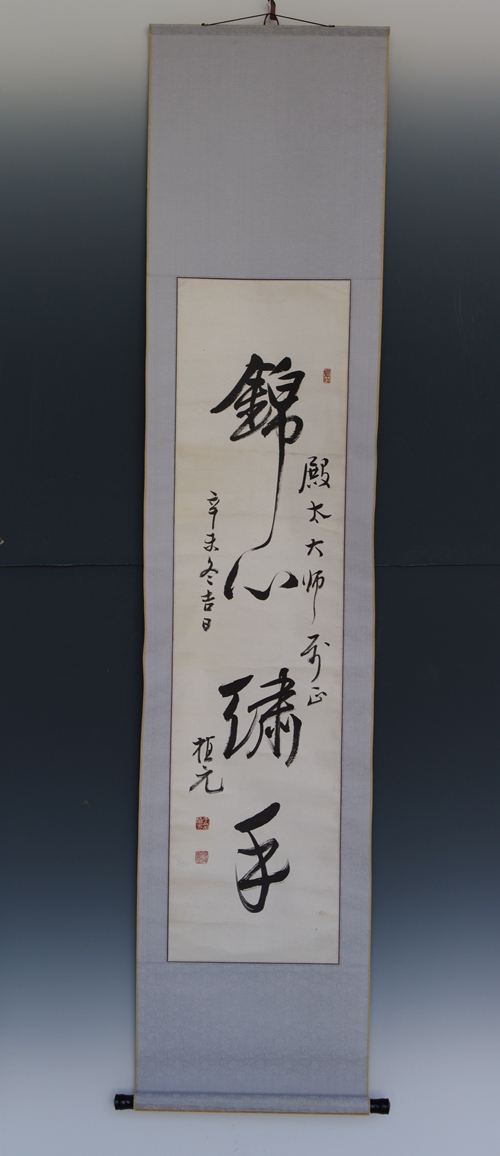 殿太大师正
錦心繡手
辛未冬吉日
植元